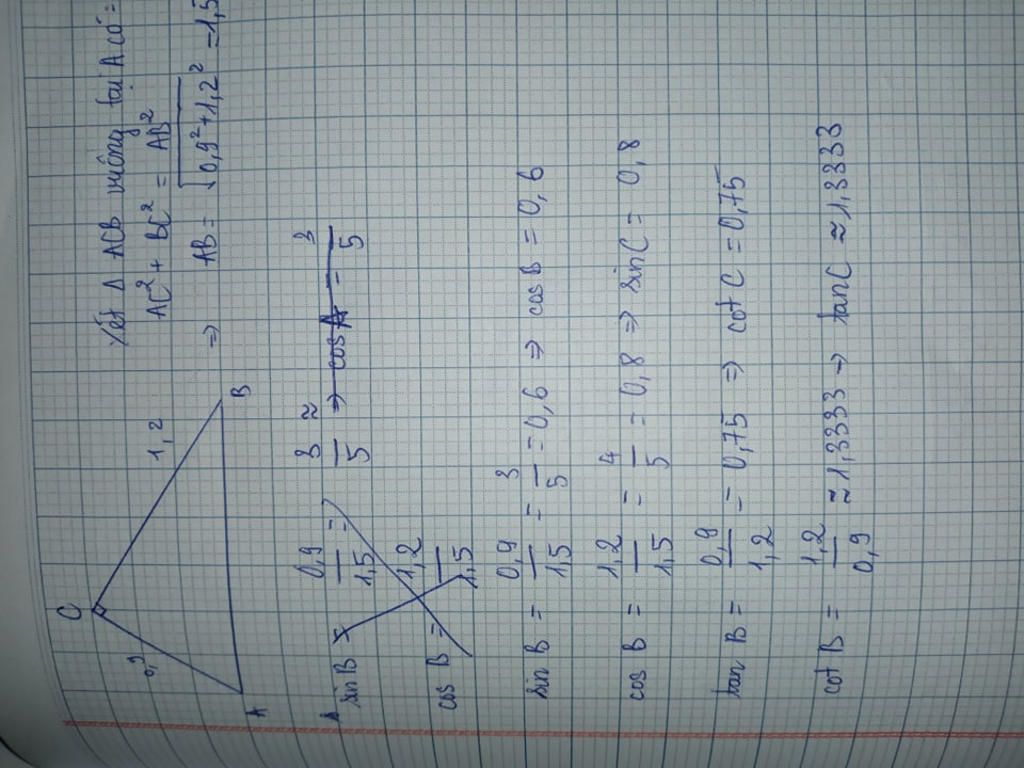 C
0,9
1,2
A
B
Xét Δ ACB vuông tại A có =
AC² + BC² = AB²
⇒ AB = √0,9² + 1,2² = 1,5
sin B = 0,9/1,5 = 3/5 ≈ ⇒ cos A = 3/5
cos B = 1,2/1,5
sin B = 0,9/1,5 = 3/5 = 0,6 ⇒ cos B = 0,6
cos B = 1,2/1,5 = 4/5 = 0,8 ⇒ sin C = 0,8
tan B = 0,9/1,2 = 0,75 ⇒ cot C = 0,75
cot B = 1,2/0,9 ≈ 1,3333 ⇒ tan C ≈ 1,3333